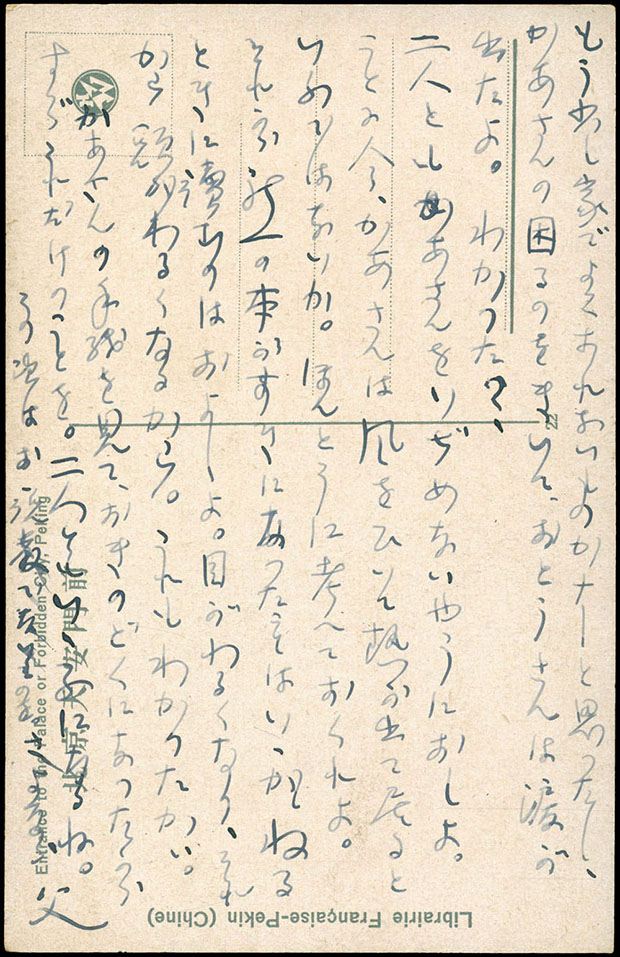 もう少し家でよくあれないものかナーと思つたし、
かあさんの困るのをきいて、おとうさんは涙が
出たよ。わかつた？
二人ともかあさんをいぢめないやうにおしよ。
ことに今、かあさんは風をひいて熱が出て居ると
いふではないか。ほんとうに考へておくれよ。
それから の本がすきになつたそはいゝがねる
ときに讀むのはおよしよ。目がわるくなり、それ
から頭がわるくなるから。これもわかつたかい。
かあさんの手紙を見て、おきのどくになつたから
すぐこれだけのことを。二人ともいゝ子になるね。
父
この
北京天安門前
Entrance to the Palace or Forbidden City, Peking
Librairie Française-Pekin (Chine)
22